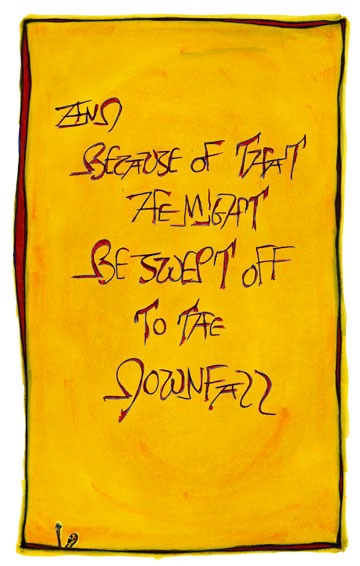 BECAUSE OF THAT
HE MIGHT
BE SWEPT OFF
TO THE
DOWNFALL